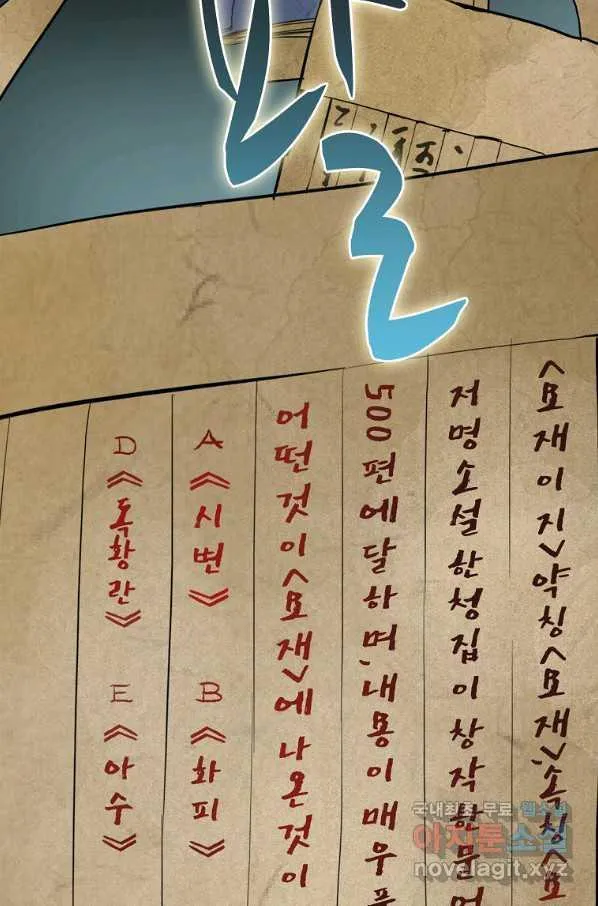 <묘재이지>약칭<묘재>,속칭<묘
저명소설한청집이창작한문어
500편에달하며,내용이매우풍
어떤것이<묘재>에나온것이
A《시변》 B《화피》
D《독황란》 E《아수》
국내최초 무료 웹소설
아지툰소설
novelagit.xyz